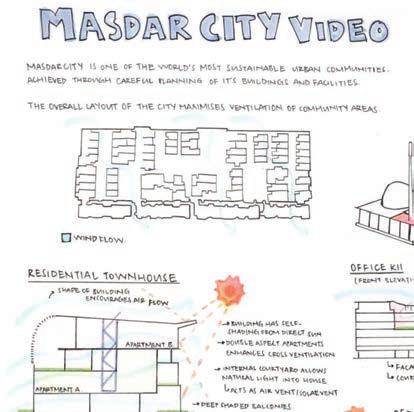 MASDAR CITY VIDEO
MASDAR CITY IS ONE OF THE WORLD'S MOST SUSTAINABLE URBAN COMMUNITIES.
ACHIEVED THROUGH CAREFUL PLANNING OF IT'S BUILDINGS AND FACILITIES.
THE OVERALL LAYOUT OF THE CITY MAXIMISES VENTILATION OF COMMUNITY AREAS.
WIND FLOW.
RESIDENTIAL TOWNHOUSE
SHAPE OF BUILDING
ENCOURAGES AIR FLOW
APARTMENT B.
APARTMENT A.
BUILDING HAS SELF-
SHADING FROM DIRECT SUN
DOUBLE ASPECT APARTMENTS
ENHANCES CROSS VENTILATION
INTERNAL COURTYARD ALLOWS
NATURAL LIGHT INTO HOUSE
ACTS AS AIR VENT/SOLAR VENT
DEEP SHADED BALCONIES
OFFICE
(FRONT